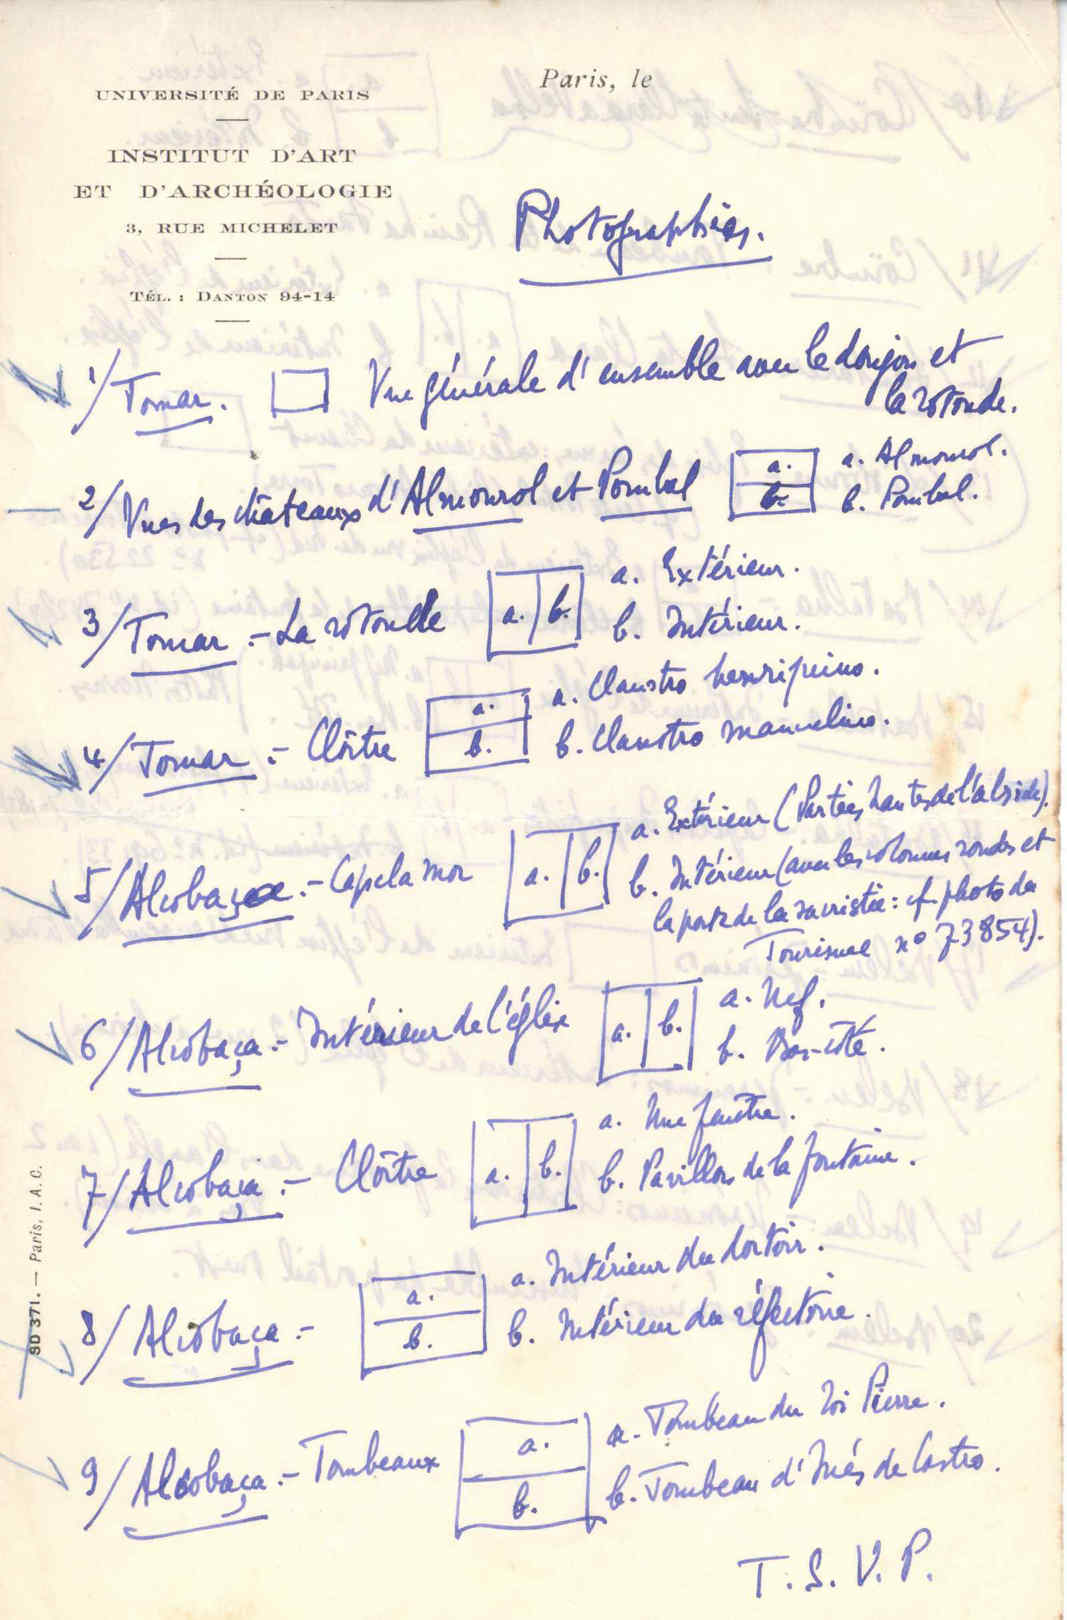 Paris, le
UNIVERSITÉ DE PARIS
INSTITUT D'ART
ET D'ARCHÉOLOGIE
3, RUE MICHELET
TÉL. : DANTON 94-14
Photographies.
1/ Tomar. Vue générale d'ensemble avec le donjon et
la rotonde.
2/ Vues des châteaux d'Almourol et Pombal a. b. a. Almourol.
b. Pombal.
3/ Tomar.- La rotonde a. b. a. Extérieur.
b. Intérieur.
4/ Tomar.- Cloître a. b. a. Claustro henriquino.
b. Claustro manuelino.
5/ Alcobaça.- Capela mor a. b. a. Extérieur (Parties hautes de l'abside).
b. Intérieur (avec les colonnes rondes et
la porte de la sacristie : cf. photo du
Tourisme n° 73854).
6/ Alcobaça.- Intérieur de l'église a. b. a. Nef.
b. Bas-côté.
7/ Alcobaça.- Cloître a. b. a. Une fenêtre.
b. Pavillon de la fontaine.
8/ Alcobaça.- a. b. a. Intérieur du dortoir.
b. Intérieur du réfectoire.
9/ Alcobaça.- Tombeaux a. b. a. Tombeau du roi Pierre.
b. Tombeau d'Inés de Castro.
T.S.V.P.
SD 371. — Paris, I.A.C.